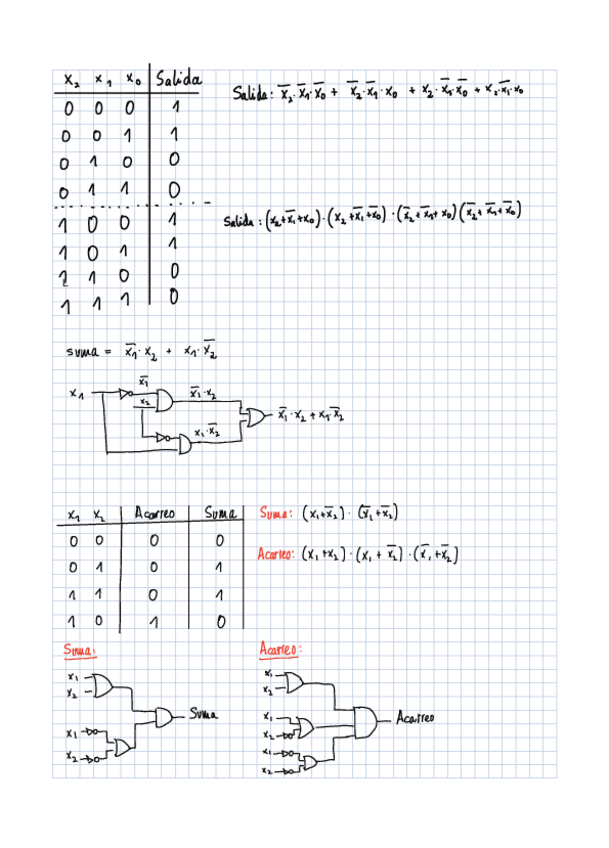 x₂ x₁ x₀ Salida
0 0 0 1
0 0 1 1
0 1 0 0
0 1 1 0
1 0 0 1
1 0 1 1
1 1 0 0
1 1 1 0
Salida: x̅₂·x̅₁·x̅₀ + x̅₂·x̅₁·x₀ + x₂·x̅₁·x̅₀ + x₂·x̅₁·x₀
Salida: (x₂+x̅₁+x₀)·(x₂+x̅₁+x̅₀)·(x̅₂+x̅₁+x₀)(x̅₂+x̅₁+x̅₀)
suma = x̅₁·x₂ + x₁·x̅₂
x₁ x̅₁ x̅₁·x₂
x₂
x̅₁·x₂ + x₁·x̅₂
x₁·x̅₂
x₁ x₂ Acarreo Suma
0 0 0 0
0 1 0 1
1 1 0 1
1 0 1 0
Suma: (x₁+x̅₂)·(x̅₁+x̅₂)
Acarreo: (x₁+x₂)·(x₁+x̅₂)·(x̅₁+x̅₂)
Suma:
x₁
x₂
Suma
x₁
x₂
Acarreo:
x₁
x₂
x₁
Acarreo
x₂
x₁
x₂